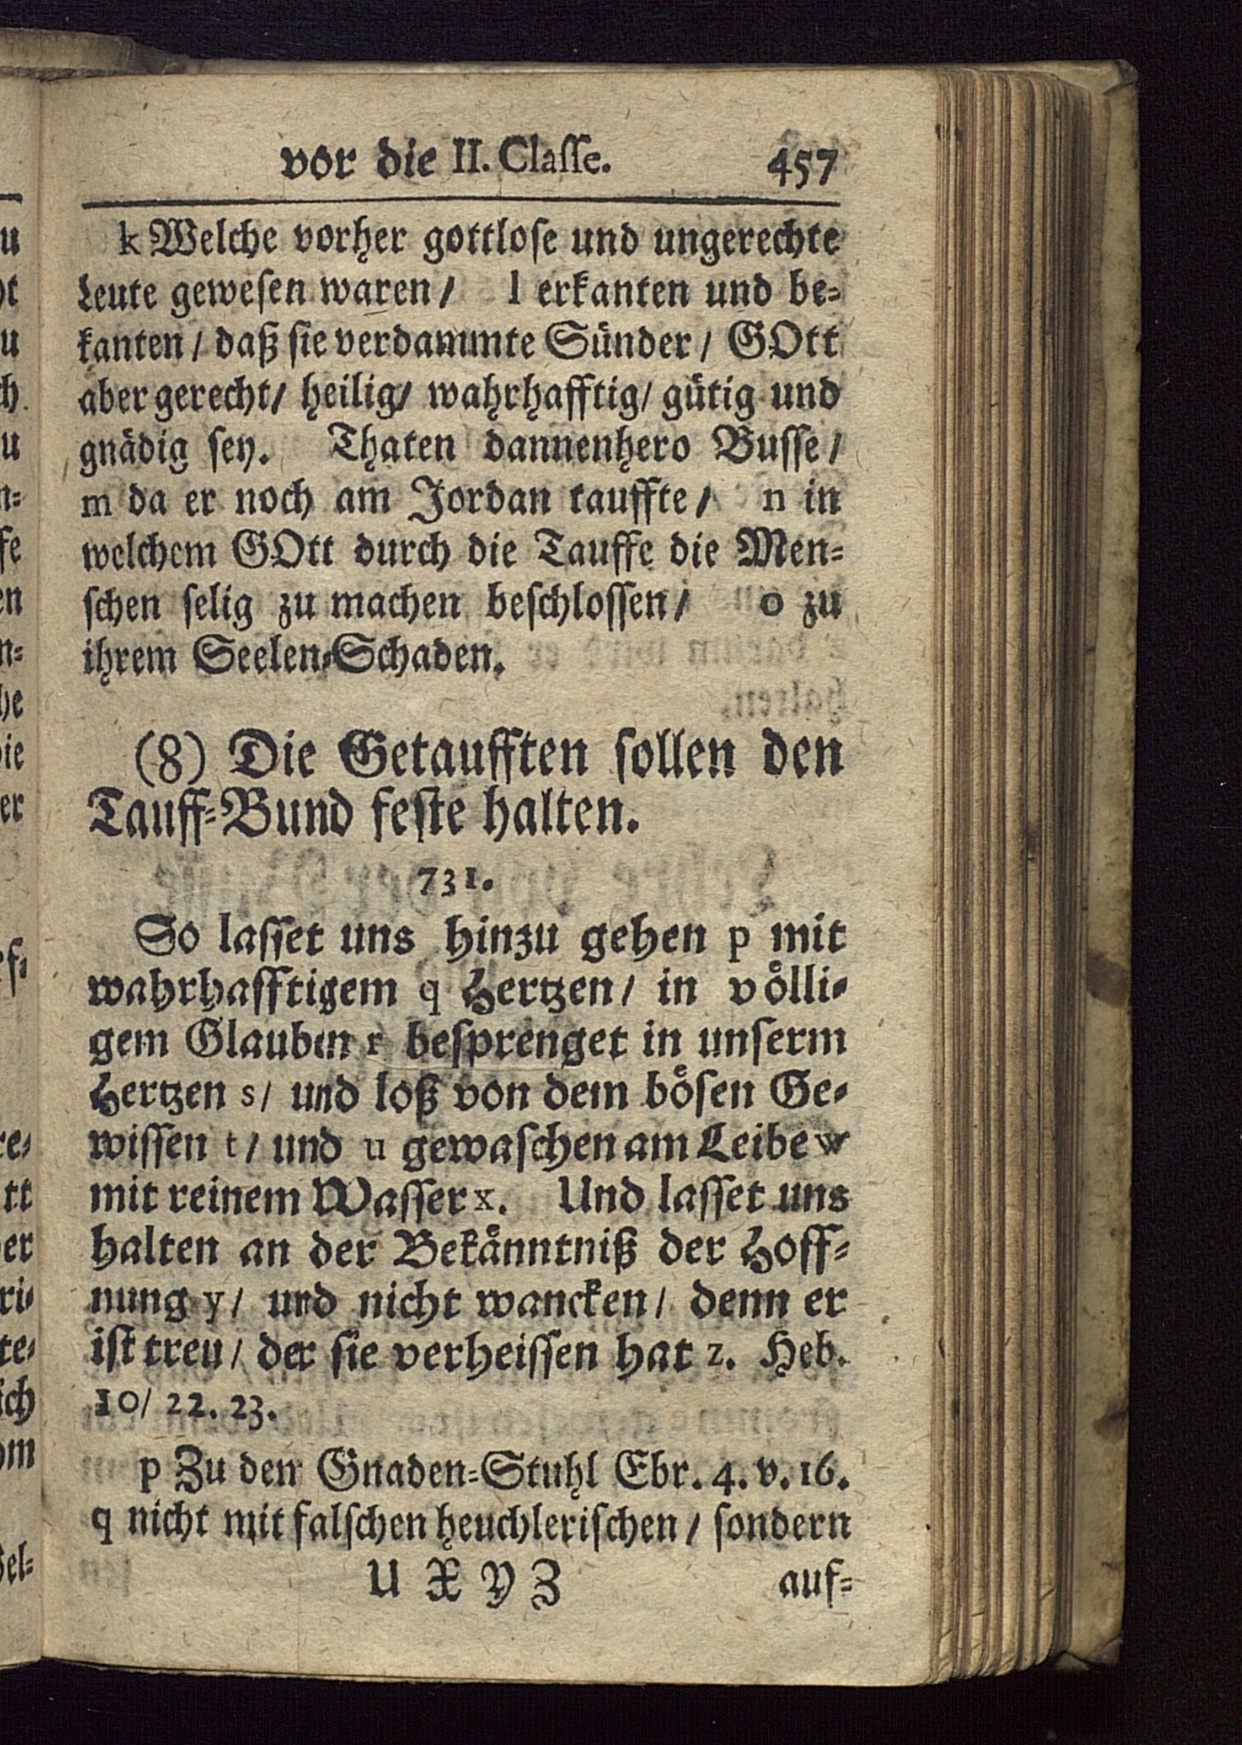 vor die II. Classe. 457
k Welche vorher gottlose und ungerechte
Leute gewesen waren / l erkanten und be-
kanten / daß sie verdammte Sünder / GOtt
aber gerecht / heilig / wahrhafftig / gütig und
gnädig sey. Thaten dannenhero Busse /
m da er noch am Jordan tauffte / n in
welchem GOtt durch die Tauffe die Men-
schen selig zu machen beschlossen / o zu
ihrem Seelen-Schaden.
(8) Die Getaufften sollen den
Tauff-Bund feste halten.
731.
So lasset uns hinzu gehen p mit
wahrhafftigem q Hertzen / in völli-
gem Glauben r besprenget in unserm
Hertzen s / und loß von dem bösen Ge-
wissen t / und u gewaschen am Leibe w
mit reinem Wasser x. Und lasset uns
halten an der Bekänntniß der Hoff-
nung y / und nicht wancken / denn er
ist treu / der sie verheissen hat z. Heb.
10 / 22. 23.
p Zu den Gnaden-Stuhl Ebr. 4. v. 16.
q nicht mit falschen heuchlerischen / sondern
U X Y Z auf-